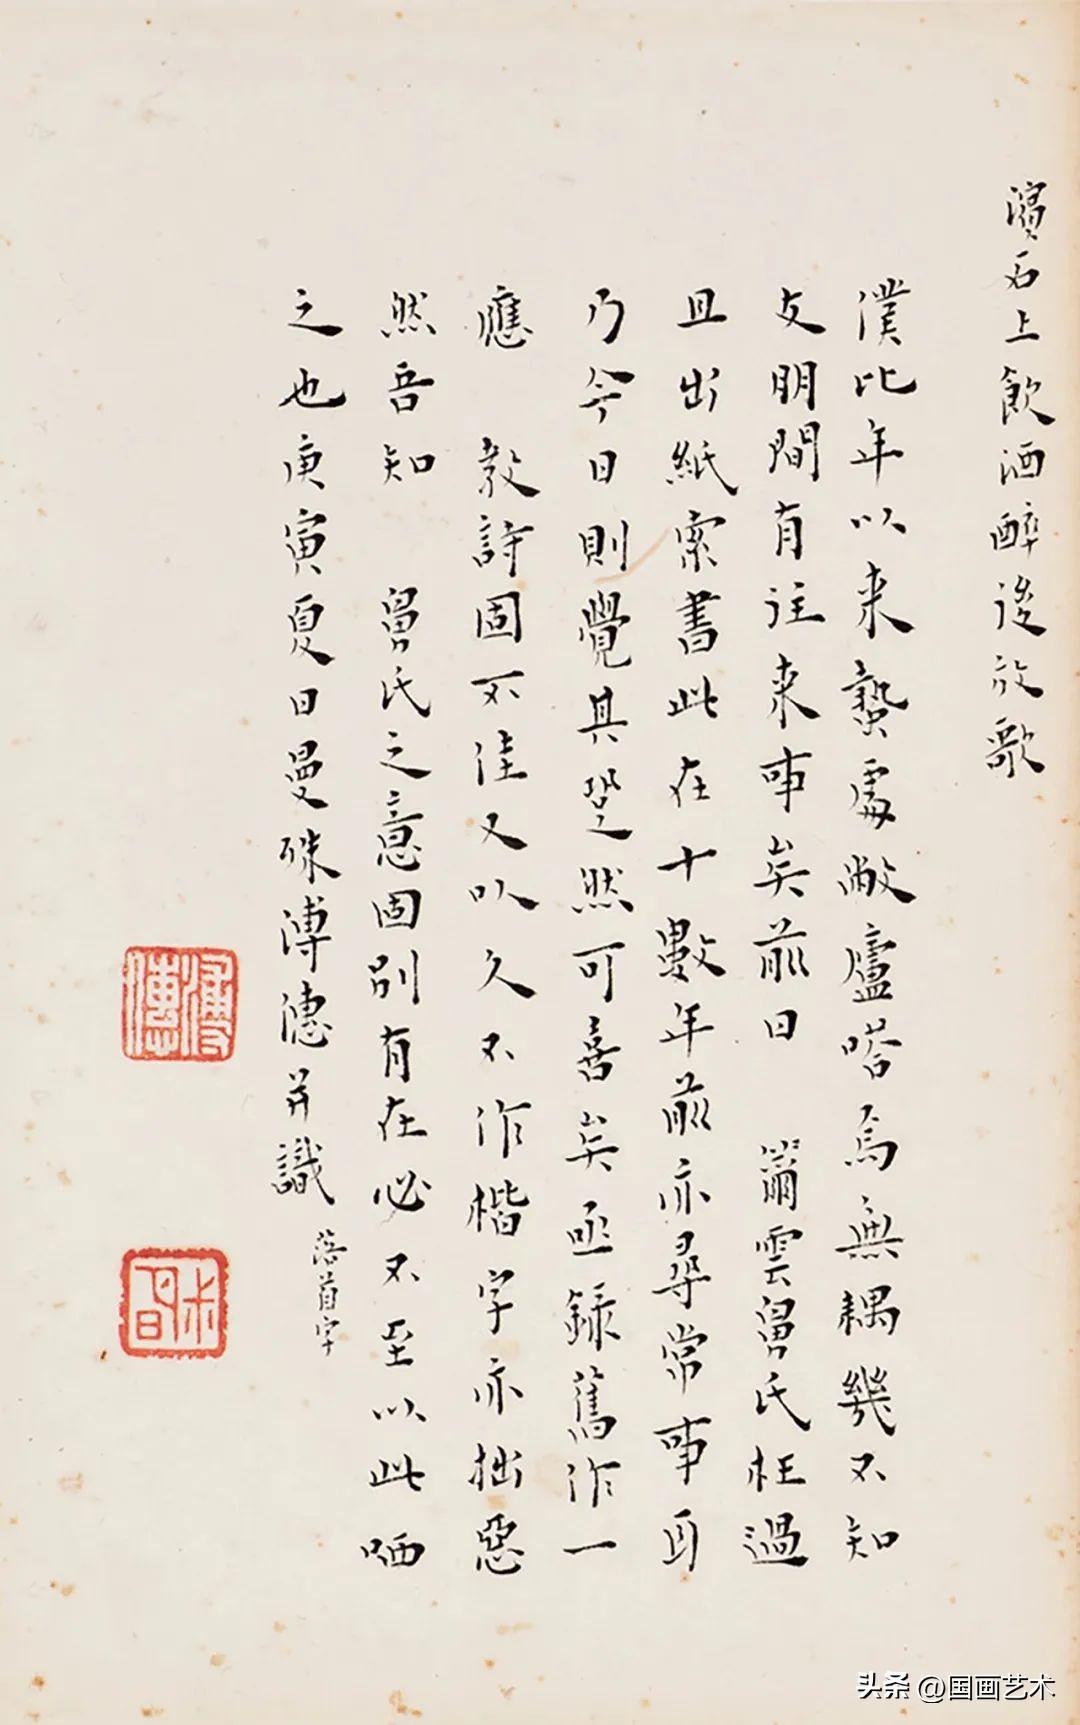 濱石上飲酒醉後放歌
僕比年以来蟄處敝廬嗒焉無耦幾不知
友朋間有往来事矣前日 簫雲舅氏枉過
且出紙索書此在十數年前亦尋常事耳
乃今日則覺其跫然可喜矣亟錄舊作一
應 教詩固不佳又以久不作楷字亦拙惡
然吾知 舅氏之意固別有在必不至以此哂
之也庚寅夏日曼殊溥儒并識
落首字
头条 @国画艺术